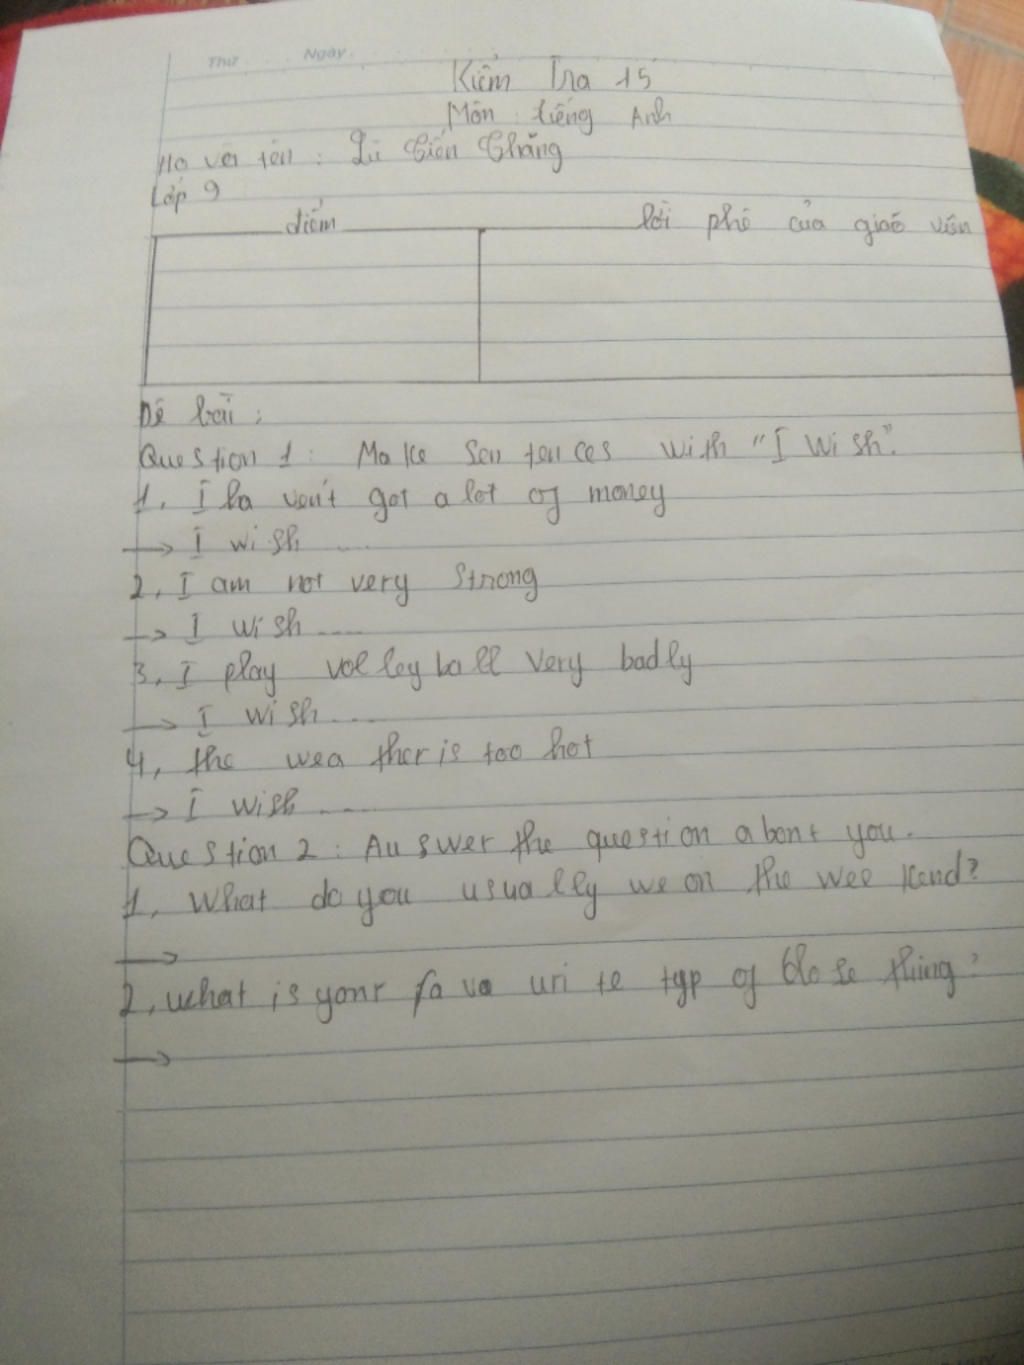 Thứ Ngày
Kiểm Tra 15
Môn : tiếng Anh
Họ và tên : Lù Tiến Thắng
Lớp 9
điểm lời phê của giáo viên
Đề bài :
Question 1 : Make Sentences with "I Wish".
1, I haven't got a lot of money
→ I wish ....
2, I am not very Strong
→ I wish ....
3, I play volleyball very badly
→ I wish ....
4, the weather is too hot
→ I wish ....
Question 2 : Auswer the question abont you.
1, What do you usually we on the weekend?
→
2, what is yonr favaurite typ of Clo se thing?
→